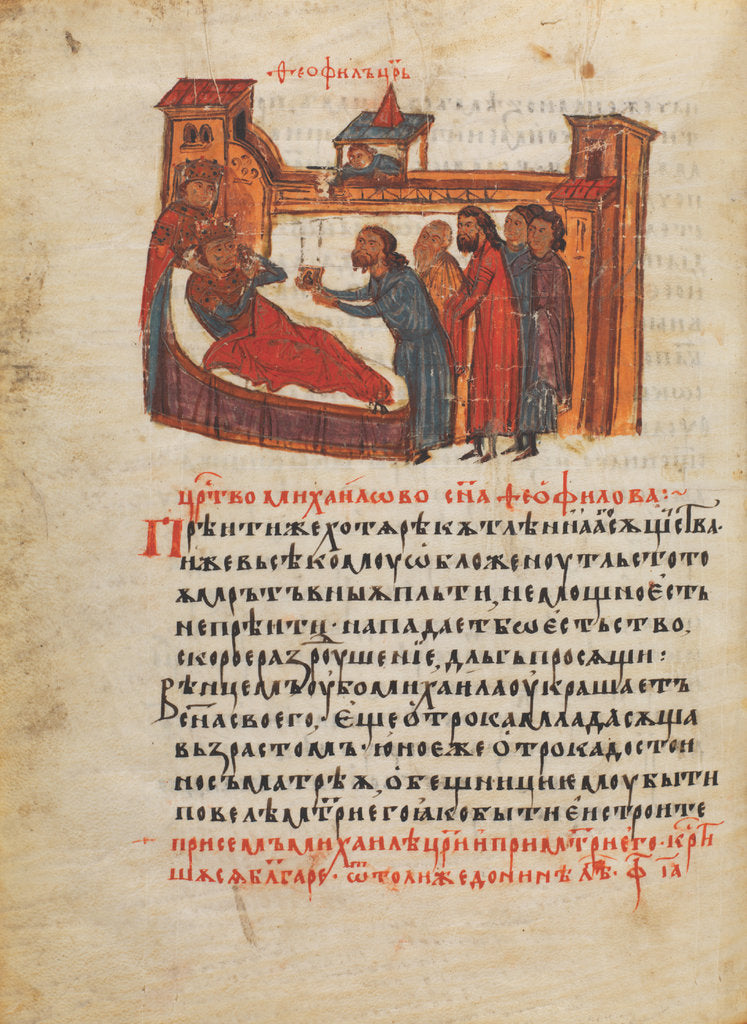 Ѳеофилъ цр҃ь
Цр҃тво михаилѡво сн҃а ѳеѡ́филова:~
Прѣити же хотѧ рѣкѫ тлѣннаа сѫщ
иже вьсѣкомоу ѡбложеноу тльстотоѫ
мрътвьныѫ пльти, немощно ѥсть
не прѣити· нападаетбѡ ѥстьство,
скорое разроушенїе, дльгь просѧщи:
Вѣнцемъ оубо михаила оукрашаетъ
сн҃а своего, ѥще ѻтрока млада сѫща
възрастомъ· юноеже ѻтрока достои
но съ матреѫ, ѻбещницикмоу быти
повелѣ мт҃рïи его ꙗко быти ѥи строите
при семъ михаилѣ цр҃и и при мт҃ри его· кр҃ти
шѫсѧ блъгаре· ѿтолиже до нинѣ лѣт·